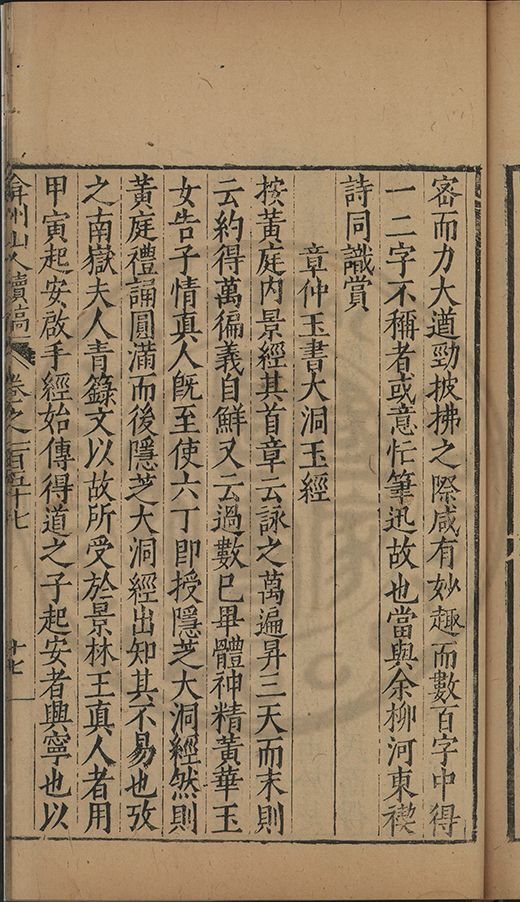 密而力大遒勁披拂之際咸有妙趣而數百字中得
一二字不稱者或意忙筆迅故也當與余柳河東禊
詩同識賞
章仲玉書大洞玉經
按黃庭內景經其首章云詠之萬遍昇三天而末則
云約得萬徧義自鮮又云過數巳畢體神精黃華玉
女告子情真人旣至使六丁即授隱芝大洞經然則
黃庭禮誦圓滿而後隱芝大洞經出知其不易也攷
之南嶽夫人青籙文以故所受於景林王真人者用
甲寅起安啟手經始傳得道之子起安者興寧也以
弇州山人續稿 卷之一百五十七 十七